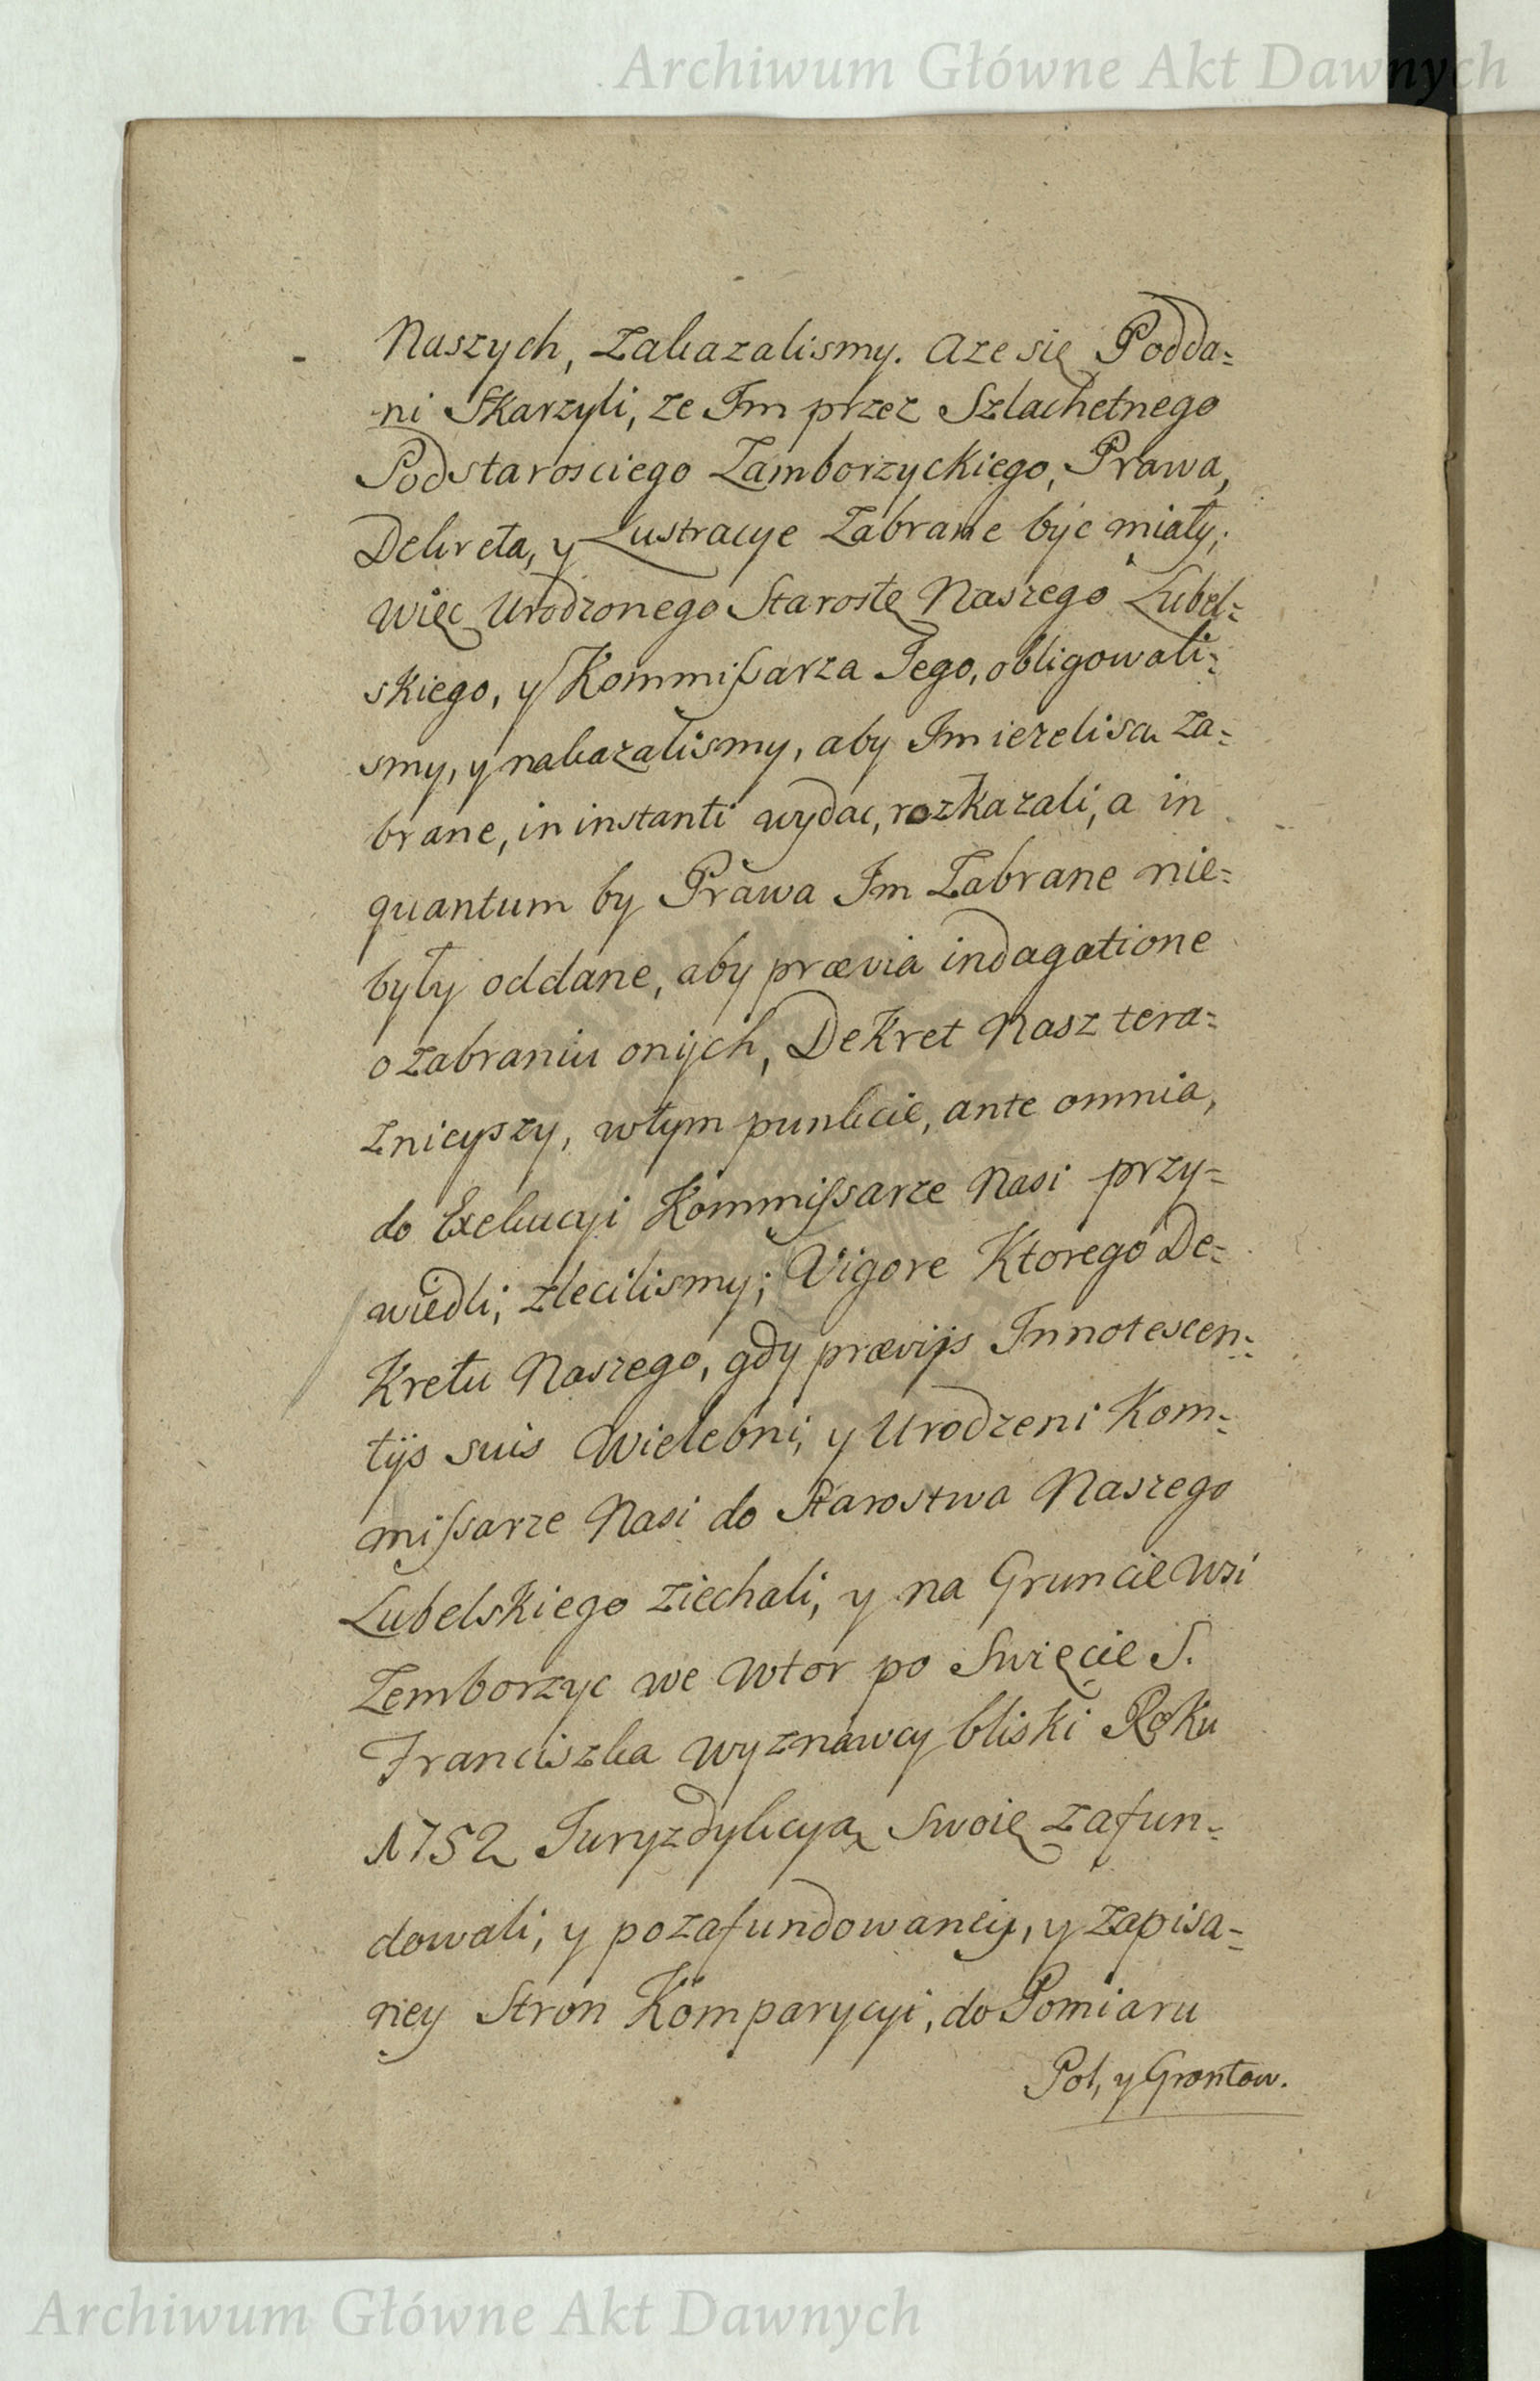 Archiwum Główne Akt Dawnych
Naszych, Zakazalismy. Aze się Podda=
ni Skarzyli, ze Im przez Szlachetnego
Podstarosciego Zamborzyckiego, Prawa,
Dekreta, y Lustracye Zabrane być miały;
Więc Urodzonego Starostę Naszego Lubel=
skiego, y Kommißarza Jego, obligowali=
smy, y nakazalismy, aby Im iezeli są za=
brane, in instanti wydać, rozkazali, a in
quantum by Prawa Im Zabrane nie=
były oddane, aby prævia indagatione
o zabraniu onych, Dekret Nasz tera=
znieyszy, wtym punkcie, ante omnia,
do Exekucyi Kommißarze Nasi przy=
wiedli, zlecilismy; Vigore Ktorego De=
Kretu Naszego, gdy prævijs Innotescen=
tijs suis Wielebni, y Urodzeni Kom=
mißarze Nasi do Starostwa Naszego
Lubelskiego ziechali, y na Gruncie Wsi
Zemborzyc we Wtor po Swięcie S.
Franciszka Wyznawcy bliski Roku
1752 Juryzdykcyą Swoię zafun=
dowali, y pozafundowaney, y Zapisa=
ney Stron Komparycyi, do Pomiaru
Pol, y Grontow.
Archiwum Główne Akt Dawnych